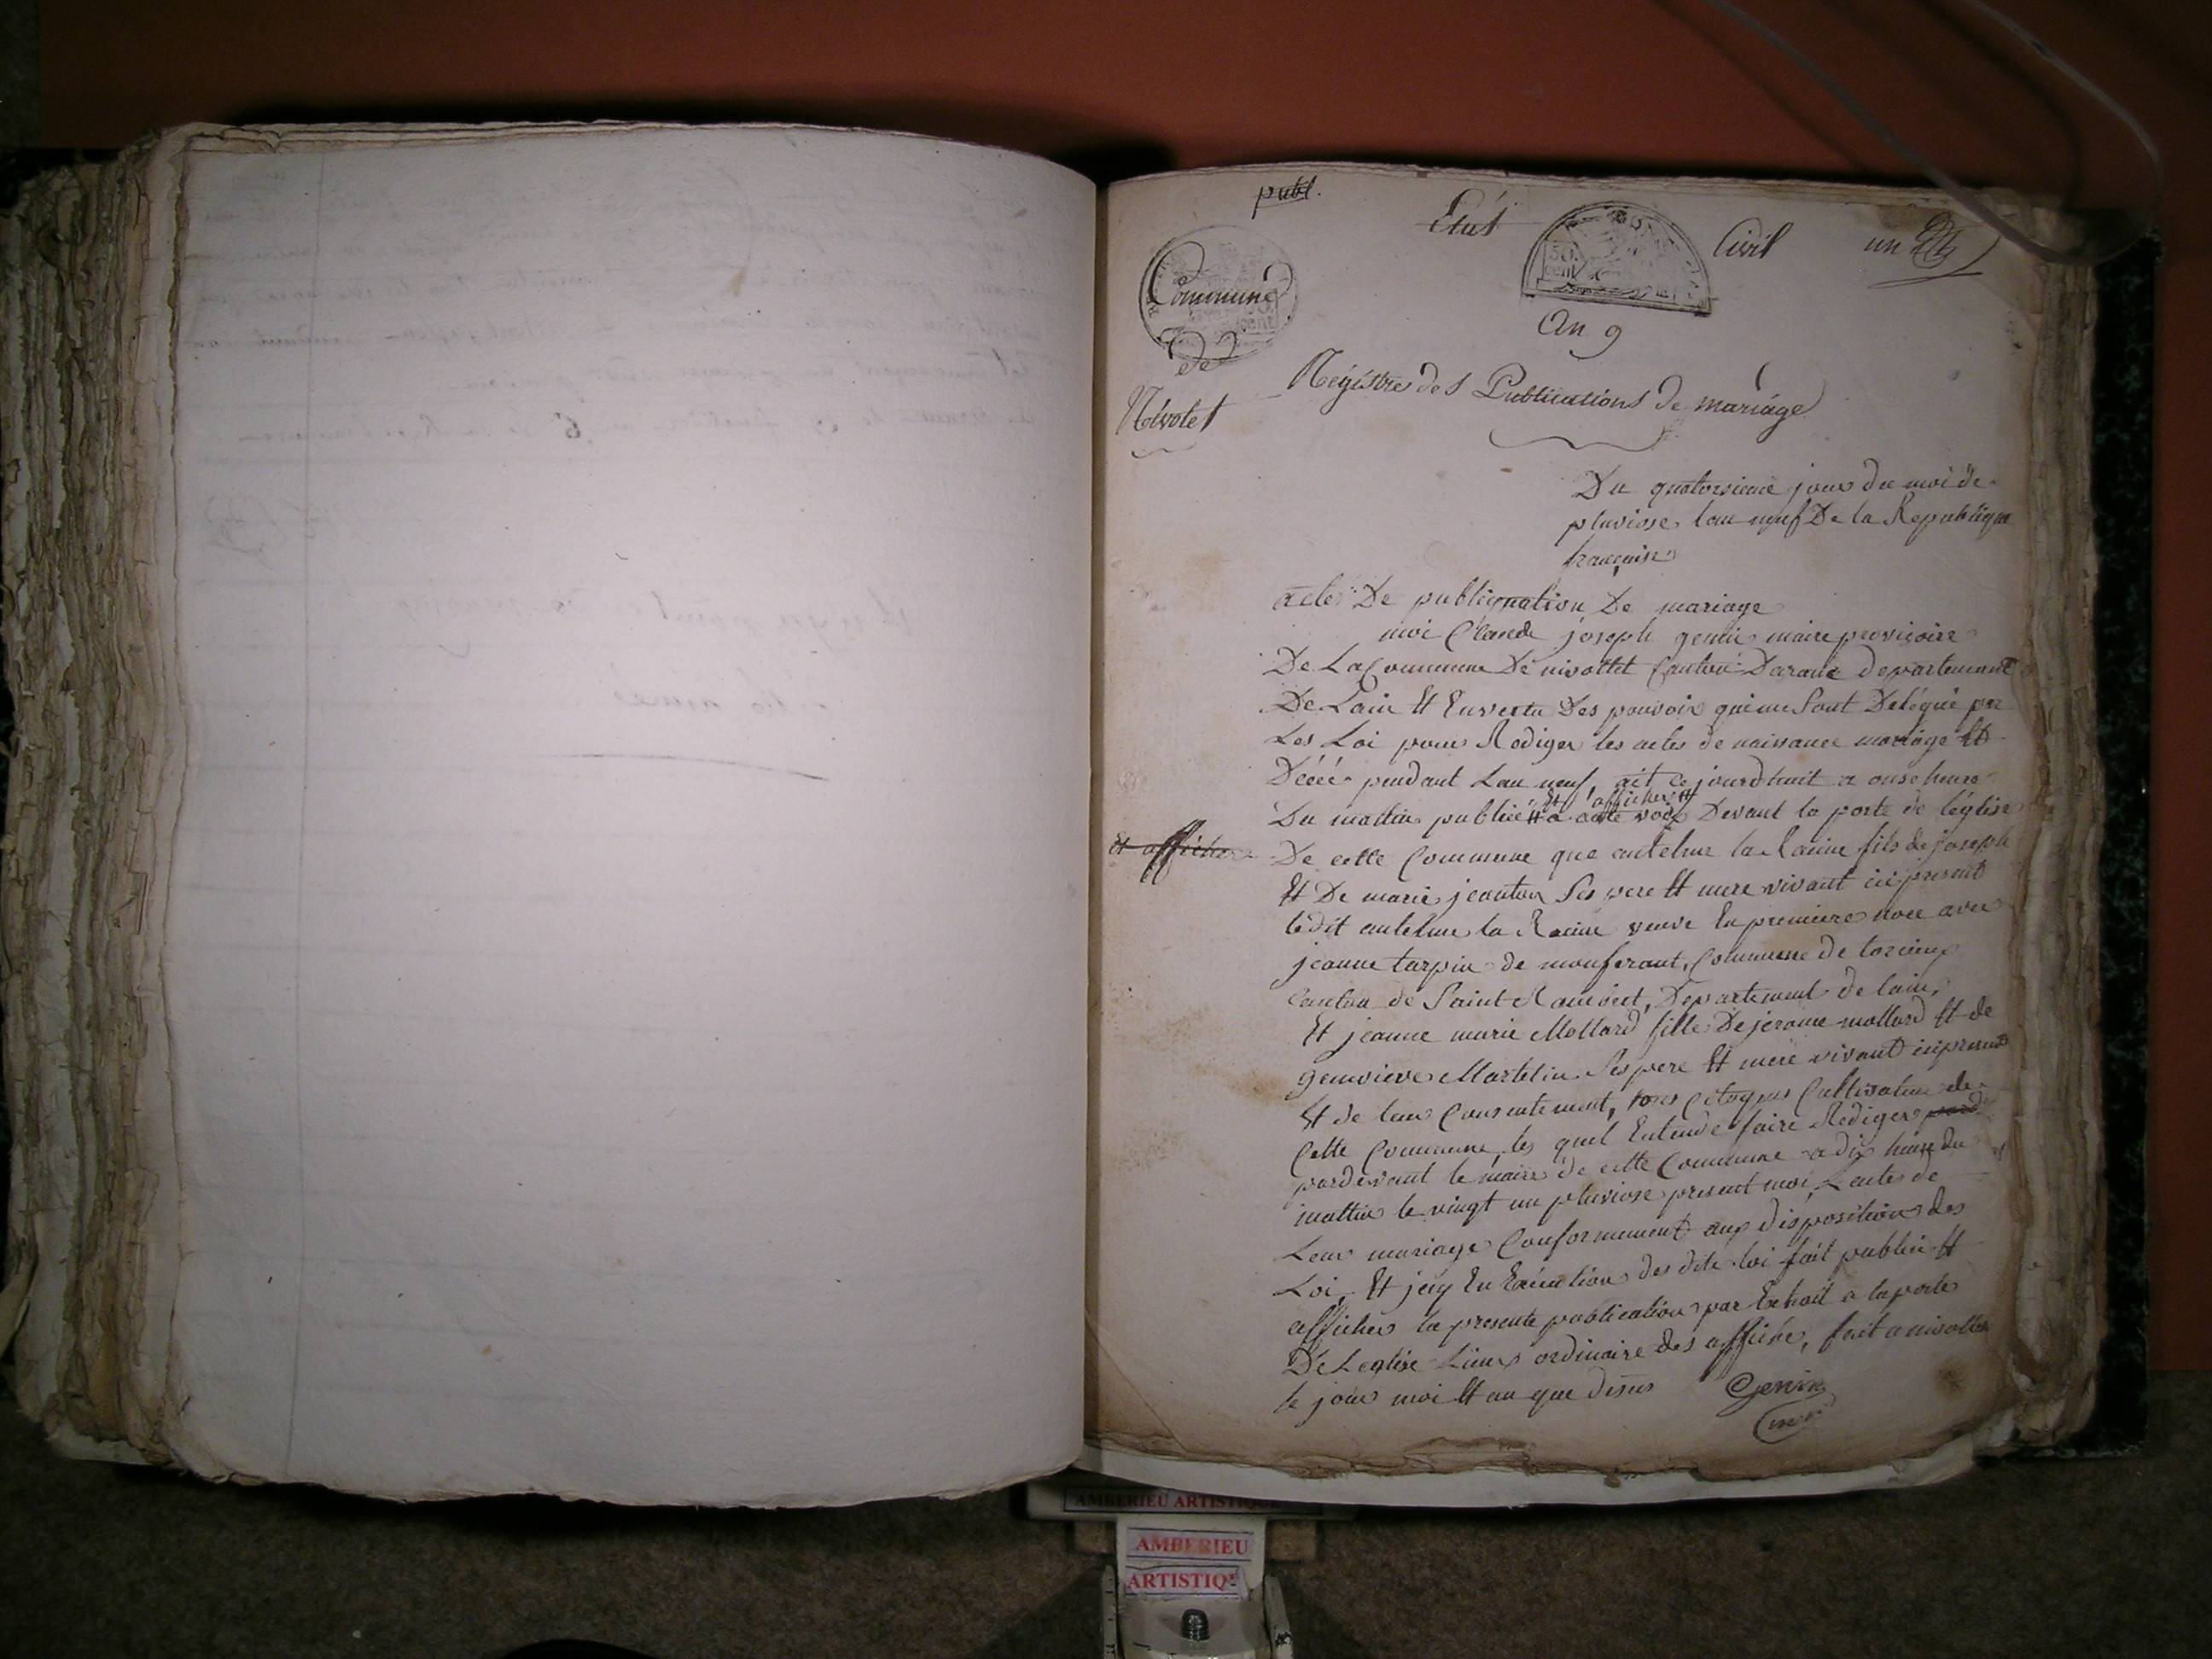 publ.
Etat Civil un
Commune
de
Nivolet
50.
cent
An 9
Régistre des Publications de mariage
Du quatorsieme jour du moi de
pluviose lan neuf De la Republique
francaise
acte De publiquation De mariage
moi Claude joseph genin maire provisoire
De La Commune De nivollet Canton Darand departement
De Lain Et En vertu Des pouvoir qui me Sont Delégué par
Les Loi pour Rediger les actes de naissance mariage Et
Décé pendant Lan neuf, ait ce jourdhuit a onse heure
Et afficher
Du mattin publié Et a aute voix Devant la porte de léglise
Et afficher
De cette Commune que antelme la Racine fils de joseph
Et De marie jeanton Ses pere Et mere vivant ici present
ledit antelme la Racine veuve En premiere noce avec
jeanne tarpin de monferant, Commune de torcieu
Canton de Saint Rambert, Departement de lain,
Et jeanne marie Mollard fille De jerome mollard Et de
genvieve Martelin Ses pere Et mere vivant ici present
Et de leur Consentement, tous Citoyens Cultivateur de
Cette Commune les quel Entende faire Rediger pard
pardevant le maire de cette Commune a dix heure du
mattin le vingt un pluviose present moi, Lacte de
Leur mariage Conformement aux dispositions des
Loi. Et jay En Execution des dite loi fait publié Et
afficher la presente publication par Extrait a la porte
De Leglise Lieux ordinaire des affiche, fait a nivollet
le jour moi Et an que dessus Genin
AMBERIEU ARTISTIQUE
AMBERIEU
ARTISTIQ